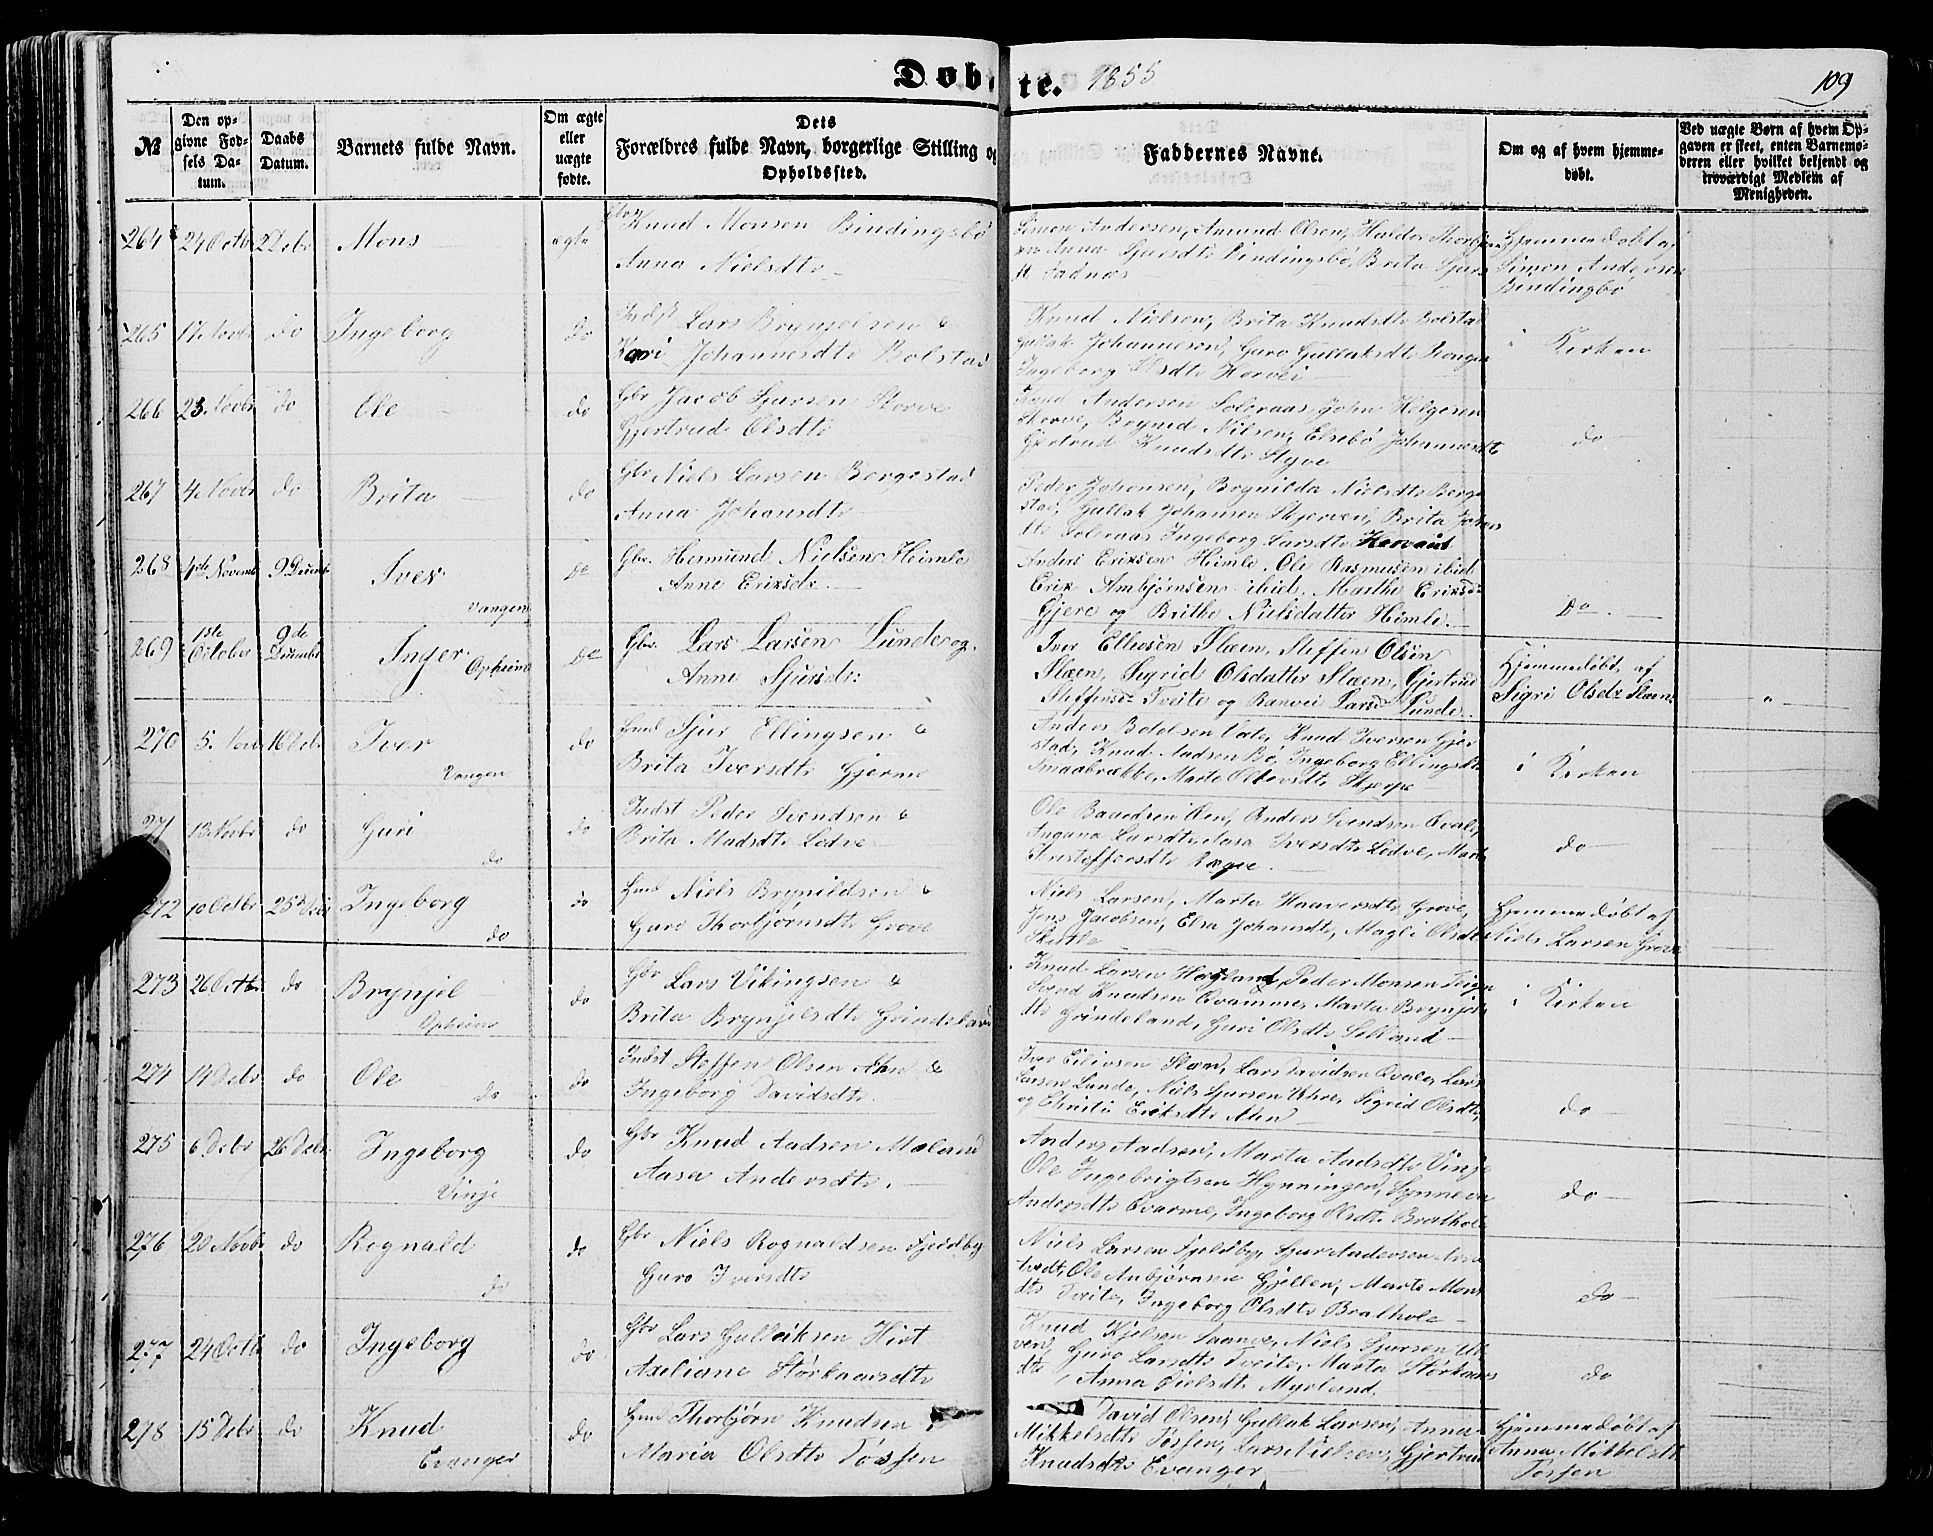 Døbte. 1855
109
№
Den op-
givne Fød-
sels Da-
tum.
Daabs
Datum.
Barnets fulde Navn.
Om ægte
eller
uægte
fødte.
Dets
Forældres fulde Navn, borgerlige Stilling og
Opholdssted.
Faddernes Navne.
Om og af hvem hjemme-
døbt.
Ved uægte Børn af hvem Op-
gaven er skeet, enten Barnemo-
deren eller hvilket bekjendt og
troværdigt Medlem af
Menigheden.
264 24 Octbr 2 Debr Mons ægte Gbr Knud Monsen Bindingsbø
Anna Nielsdtr
Simon Andersen, Amund Olsen, Haldor
Anna Sjursdtr Bindingsbø, Brita Sjurs
Hjemmedøbt af
Simon Andersen
Bindingbø
265 17 Novbr do Ingeborg do Indst Lars Brynjelsen &
Kari Johannesdtr Bolstad
Knud Nielsen, Brita Knudsdtr Bolstad
Gullak Johannesen, Guro Gullaksdtr
Ingeborg Olsdtr Horvei
i Kirken
266 23 Novbr do Ole do Gbr Jacob Sjursen Rorve
Gjertrud Olsdtr
Knud Andersen Soleraas, John Helgesen
Rorve, Brynild Nilsen, Elsebø Johannesdtr
Gjertrud Knudsdtr Styve
do
267 4 Novbr do Brita do Gbr Niels Larsen Bergestad
Anna Johansdtr
Peder Johansen, Brynilda Nielsdtr Berge
stad, Gullak Johansen Skjerven, Brita Johns
dtr Soleraas Ingeborg Larsdtr Horvei
268 4de Novemb 9 Decemb Iver Vangen do Gbr. Hermund Nielsen Himle
Anne Eriksdr.
Anders Eriksen Himle. Ole Rasmusen ibid
Erik Ambjørnsen ibid. Marthe Eriksdr
Gjere og Brithe Nielsdatter Himle.
Do
269 1ste October 9de Decemb Inger Opheim do Gbr. Lars Larsen Lunde og
Anne Sjursdr:
Iver Ellevsen Slæen, Steffen Olsen
Slæen, Sygrid Olsdatter Slæen, Gjertrud
Steffensdr Tveite og Ranvei Larsd Lunde.
Hjemmedøbt af
Sigri Olsdr Slæen
270 5. Nov 16 Deb Iver Vangen do Gmd Sjur Ellingsen &
Brita Iversdtr Gjerme
Anders Knud Iversen Gjer
stad, Knud Aadsen Bø, Ingeborg Ellingsdtr
Smaabrække, Marta Skjerpe
i Kirken
271 13 Novbr do Guri do do Indst Peder Svendsen &
Brita Madsdtr Ledve
Ole Anders Svendsen Qvale,
Ingana Larsdtr, Aasa Iversdtr Ledve, Marta
Kristoffersdtr Rogne.
do
272 10 Octbr 25 Debr Ingeborg do do Gmd Niels Brynildsen &
Guro Thorbjørnsdtr Grove
Niels Larsen, Marta Haaversdtr Grove,
Jens Jacobsen, Elsa Johansdtr, Magli Olsdtr
Skutle
Hjemmedøbt af
Niels Larsen Grove
273 26 Octbr do Brynjel Opheim do Gbr Lars Vikingsen &
Brita Brynjelsdtr Grindeland
Knud Larsen Hogland, Peder Monsen
Svend Knudsen Qvamme, Marta Brynjels
dtr Grindeland, Guri Olsdtr Selland
i Kirken
274 14 Debr do Ole do do Indst Steffen Olsen Aen &
Ingeborg Davidsdtr.
Iver Eilivsen Slæn, Lars Davidsen Qvale, Lars
Larsen Lunde, Niels Sjursen Sigrid Olsdtr
og Christi Eriksdtr Aen
do
275 6 Debr 26 Debr Ingeborg Vinje do Gbr Knud Aadsen Mæland
Aasa Andersdtr.
Anders Aadsen, Marta Aadsdtr Vinje
Ole Ingebrigtsen Hynningen, Synneva
Andersdtr Qvarme, Ingeborg Olsdtr Brathole
do
276 20 Novbr do Rognald do do Gbr Niels Rognaldsen Fjeldby
Guro Iversdtr
Niels Larsen Fjeldby, Sjur Andersen
tvedt, Ole Anbjørnsen Gjellen, Marta Mons
dtr Tveite, Ingeborg Olsdtr Brathole
do
277 24 Octb do Ingeborg do Gbr Lars Gulleiksen Hirt
Axeliane Størkaarsdtr
Knud Kjelsen Saanve, Niels Sjursen Ul
ven, Guro Larsdtr Tveite, Marta Størkaars
dtr, Anna Nielsdtr Myrland.
do
278 15 Debr do Knud Evanger do Gmd Thorbjørn Knudsen
Maria Olsdtr Fossen
David Olsen, Gullak Larsen, Anna
Mikkelsdtr Fossen, Lars Nielsen, Gjertrud
Knudsdtr Evanger
Hjemmedøbt af
Anna Mikkelsdt
Fossen